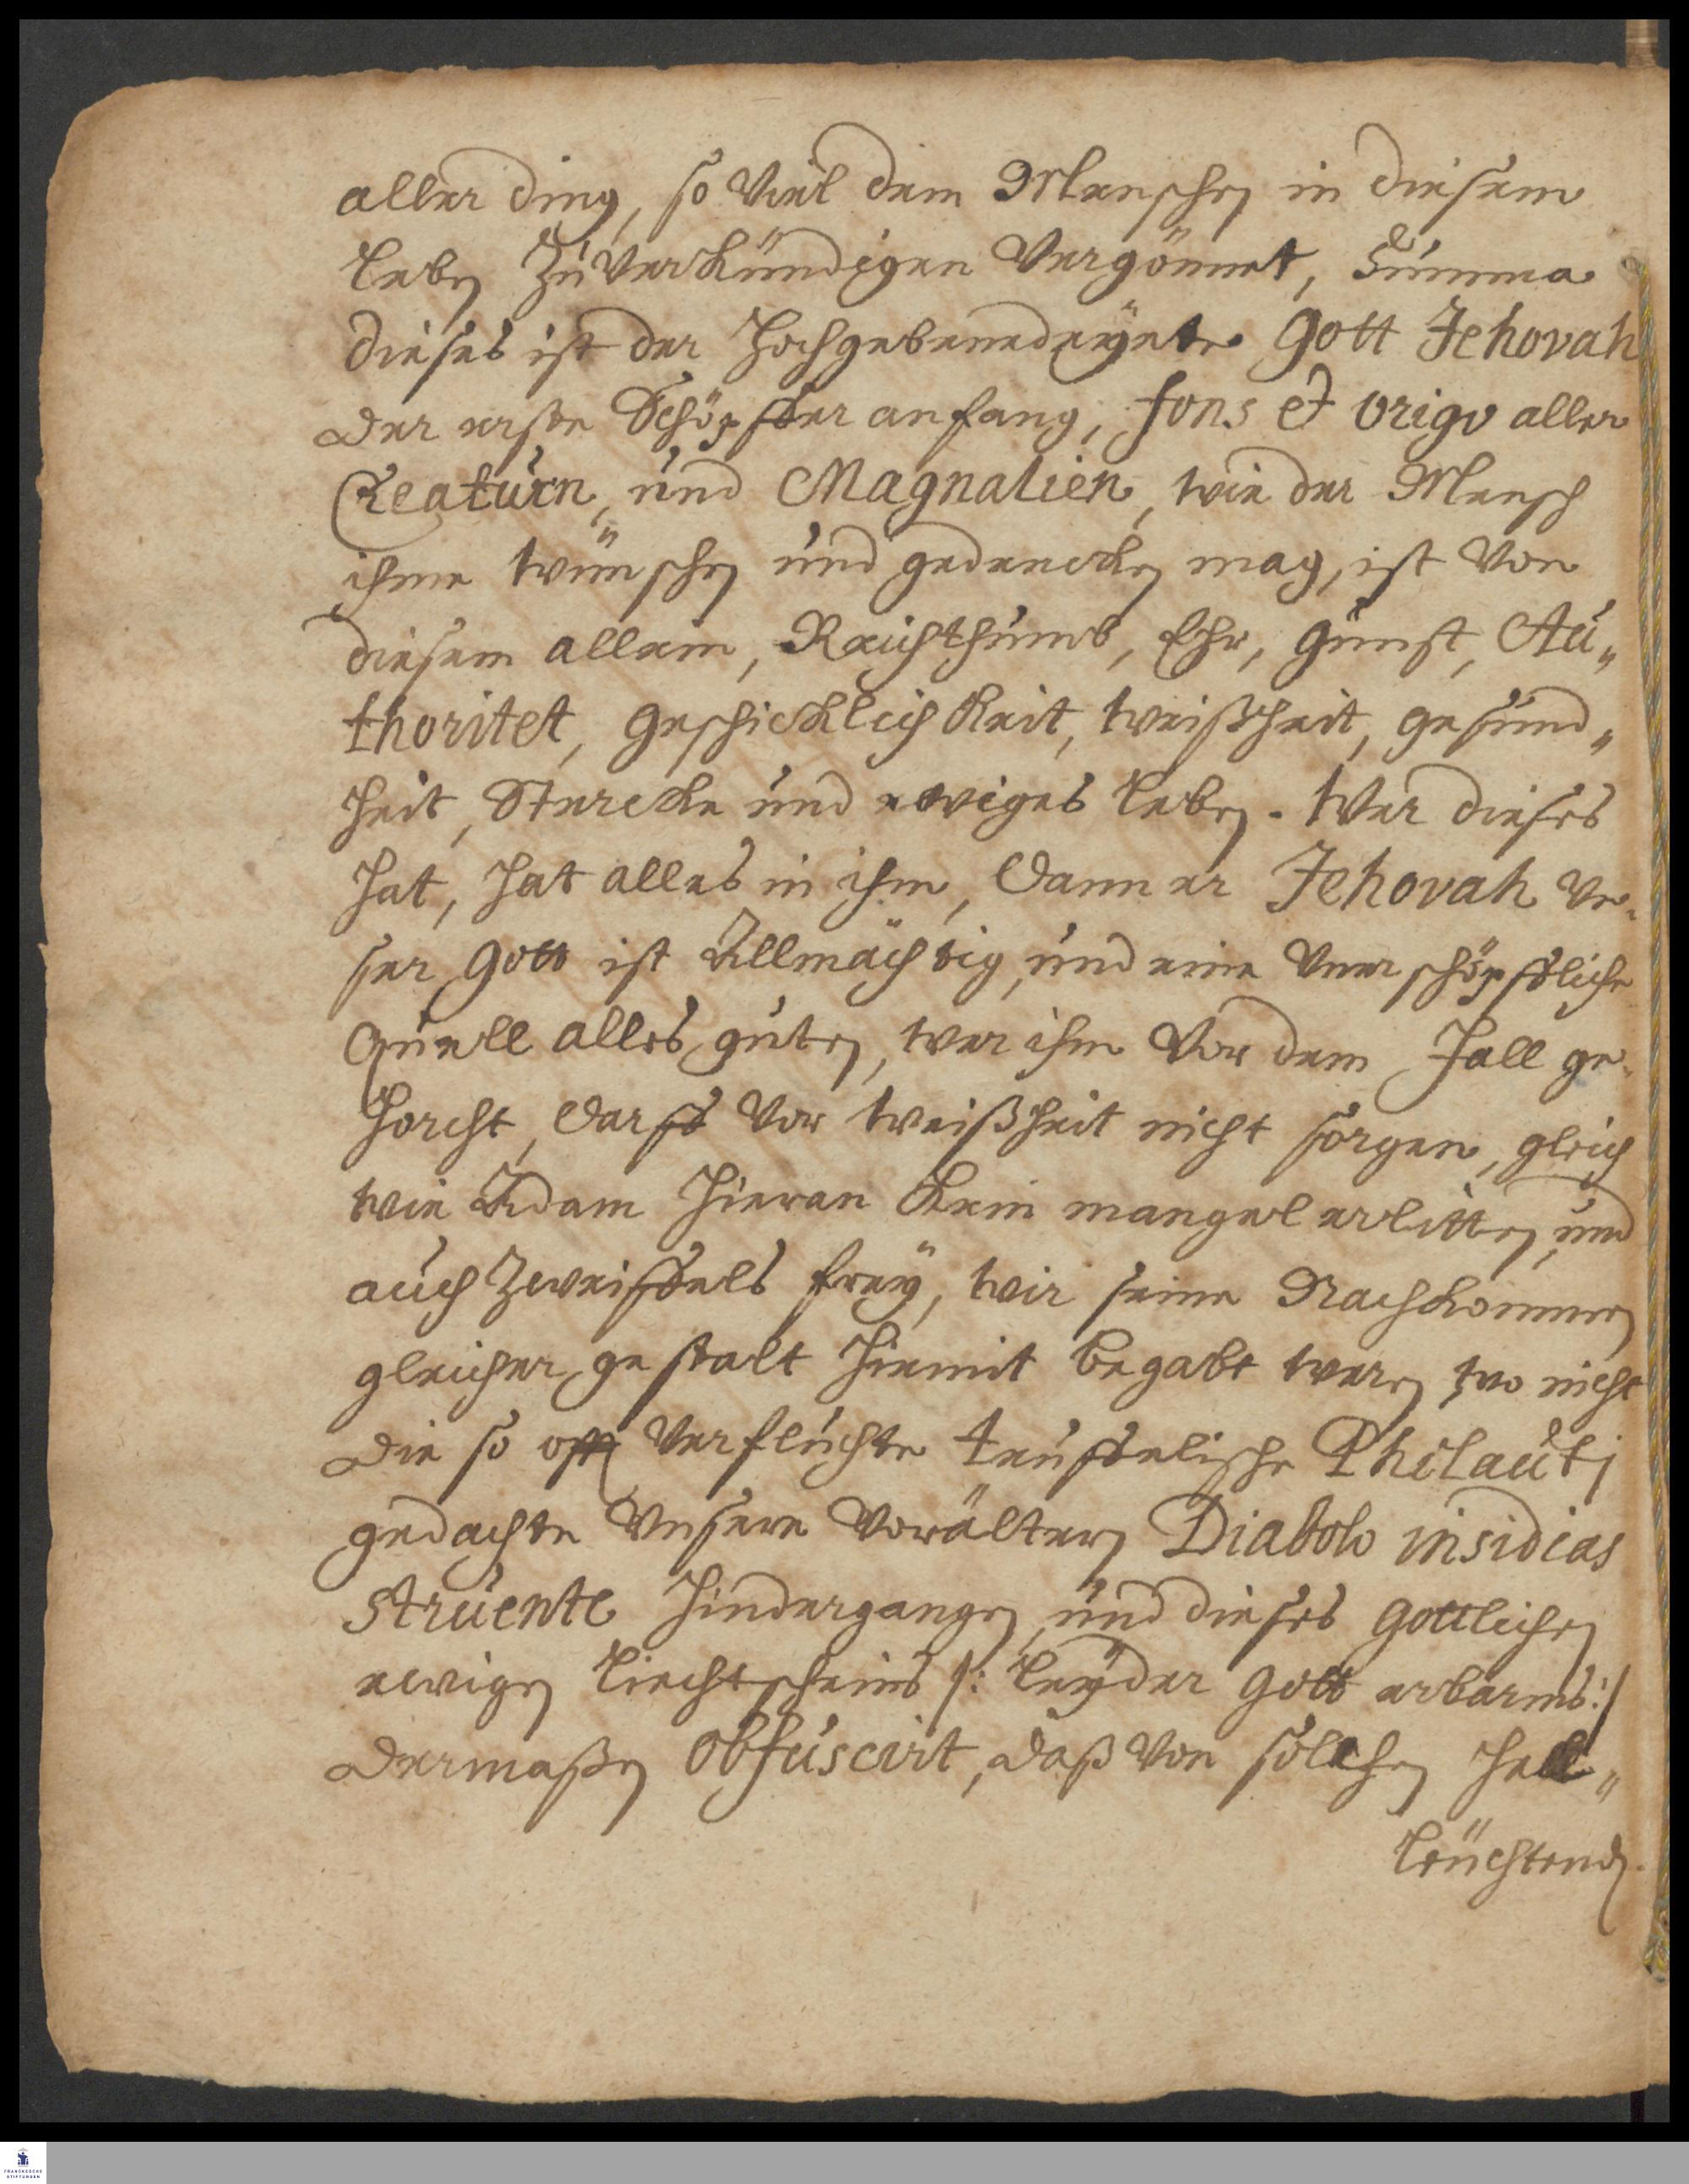 aller ding, so Viel dem Menschen in diesem
leben Zuverkündigen Vergönnet, Summa
dieses ist der Hochgebenedeyete Gott Jehovah
der erste Schöpffer anfang, fons et origo aller
Creaturn, und Magnalien, wie der Mensch
ihme wünschen und gedencken mag, ist Von
diesem allein, Reichthumb, Ehr, gunst, Au„
thoritet, geschicklichkeit, weißheit, gesund„
heit, Stercke und ewiges leben. Wer dieses
hat, hat alles in ihm, dann er Jehovah Vn-
ser Gott ist Allmächtig, und eine Vnerschöpffliche
Quell alles guten, wer ihm Vor dem Fall ge-
horcht, darfft Vor weißheit nicht sorgen, gleich
wie Adam hieran kein mangel erlitten, und
auch Zweiffels frey, wir seine Nachkommen
gleicher gestalt hiemit begabt weren, wo nicht
die so offt Verfluchte teuffelische Philauti
gedachte Vnsere Vorältern Diabolo insidias
struente hindergangen, und dieses Gottlichen
ewigen Liechtscheins /: leyder Gott erbarms :/
dermaßen obfuscirt, daß Von solchen hell„
leüchtenden
FRANCKESCHE
STIFTUNGEN